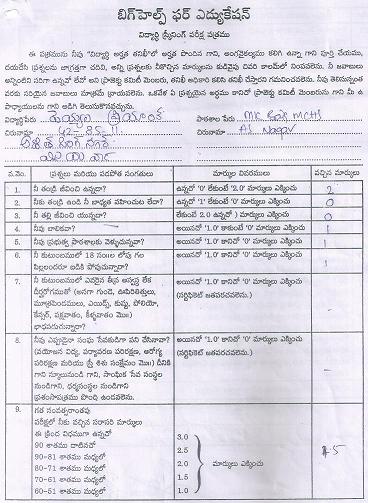 బిగ్‌హెల్ప్ ఫర్ ఎడ్యుకేషన్
విద్యార్థి స్క్రీనింగ్ పరీక్ష పత్రము
ఈ పత్రమును నీవు "విద్యార్థి అర్హత తనిఖీ"లో అర్హత పొందిన గాని, అంగవైకల్యము కలిగి ఉన్నా గాని పూర్తి చేయము,
దయచేసి ప్రశ్నలను జాగ్రత్తగా చదివి, అన్ని ప్రశ్నలకు నీకొచ్చిన మార్కులను కుడివైపు చివరి కాలమ్‌లో నింపవలెను. నీ జవాబులు
అన్నింటిని సరిగా ఉన్నవో లేవో అని ప్రాజెక్టు కమిటీ మెంబరు, తనిఖీ అధికారి కలిసి తనిఖీ చేస్తారని గమనించవలెను. నీవు తెలిసినంత
వరకు సరియైన జవాబులు మాత్రమే వ్రాయవలెను. ఒకవేళ ఏ ప్రశ్నయైన అర్థము కానిచో ప్రాజెక్టు కమిటీ మెంబరును గాని మీ ఉ
పాధ్యాయులను గాని అడిగి తెలుసుకొనవచ్చును.
విద్యార్థిపేరు పాఠశాల పేరు
చిరునామా 42-85-11 చిరునామా AS Nagar
వ.నెం. ప్రశ్నలు మరియు పదపోత సంగతులు మార్కుల వివరములు వచ్చిన మార్కులు
1. నీ తండ్రి జీవించి ఉన్నాడా? ఉన్నచో '0' లేకుంటే '2.0 మార్కులు ఎక్కించు 2
2. నీకు తండ్రి ఉండి నీ బాధ్యత వహించుట లేదా? ఉన్నచో '1' లేకుంటే '0' మార్కులు ఎక్కించు 0
3. నీ తల్లి జీవించి యున్నదా? లేకుంటే 2.0 ఉన్నచో ) మార్కులు ఎక్కించు 0
4. నీవు బాలికవా? అయినచో '1.0' కాకుంటే '0' మార్కులు ఎక్కించు 1
5. నీవు ప్రభుత్వ పాఠశాలకు వెళ్ళుచున్నావా? అయినచో '1.0' కానిచో '0' మార్కులు ఎక్కించు 1
6. నీ కుటుంబములో 18 సం॥ల లోపు గల
పిల్లలందరూ బడికి పోవుచున్నారా? అయినచో '1.0' కానిచో '0' మార్కులు ఎక్కించు 1
7. నీ కుటుంబములో ఎవరైన తీవ్ర అస్వస్థ లేక
దీర్ఘరోగముతో (అనగా గుండె, ఊపిరితిత్తులు,
మూత్రపిండములు, ఎయిడ్స్, కుష్ఠు, పోలియో,
కేన్సర్, పక్షవాతం, కీళ్ళవాతం మొ॥)
బాధపడుచున్నారా? అయినచో '1.0' కానిచో '0' మార్కులు ఎక్కించు
(సర్టిఫికెట్ జతపరచవలెను.) –
8. నీవు ఎప్పుడైనా సంఘ సేవకుడిగా పని చేసినావా?
(వయోజన విద్య, పర్యావరణ పరిరక్షణ, ఆరోగ్య
పరిరక్షణ మరియు స్త్రీ శిశు సంక్షేమం మొ॥) దీనికి
గాని స్కూలునుండి గాని, సాంఘిక సేవ సంస్థల
నుండిగాని, ధర్మసంస్థల నుండిగాని
ప్రశంసాపత్రము పొంది ఉండవలెను. అయినచో '1.0' కానిచో '0' మార్కులు ఎక్కించు
(సర్టిఫికెట్ జతపరచవలెను.) –
9. గత సంవత్సరాంతపు
పరీక్షలో నీకు వచ్చిన సరాసరి మార్కులు
ఈ క్రింది విధముగా ఉన్నచో
90 శాతము దాటినచో 3.0
90–81 శాతము మధ్యలో 2.5
80–71 శాతము మధ్యలో 2.0 మార్కులు ఎక్కించు
70–61 శాతము మధ్యలో 1.5
60–51 శాతము మధ్యలో 1.0